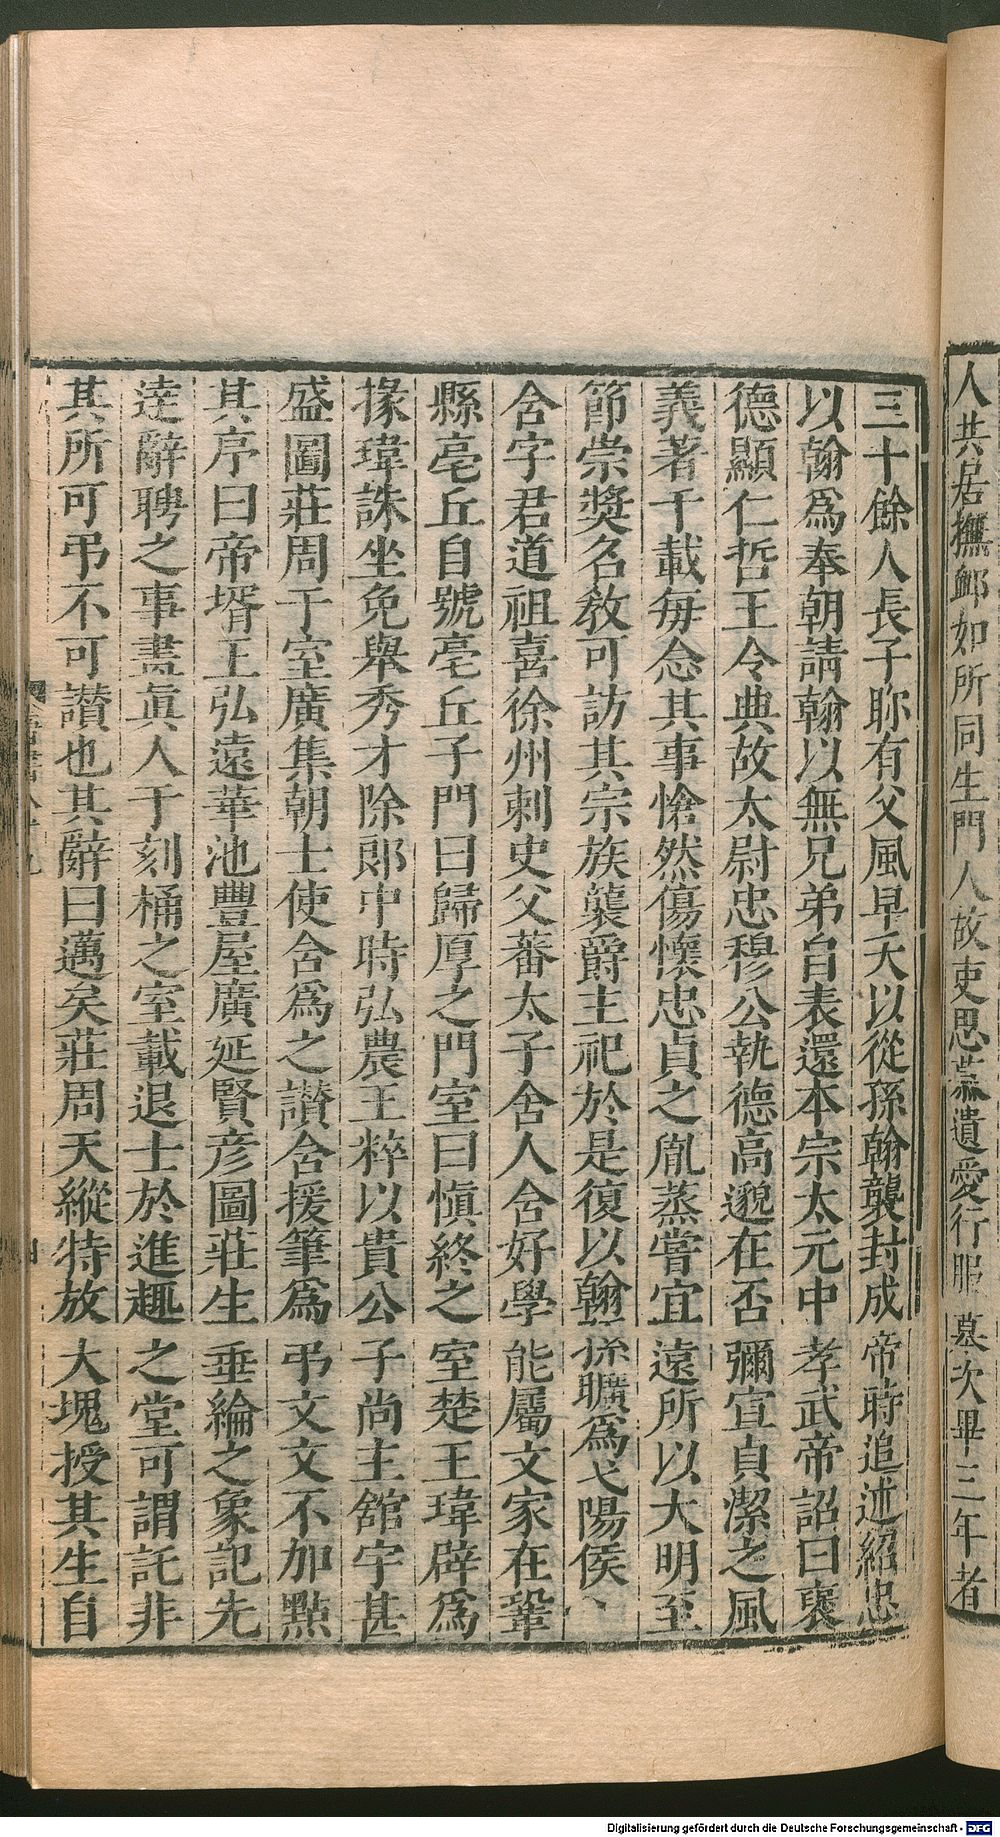 人共居撫䘏如所同生門人故吏思慕遺愛行服墓次畢三年者
三十餘人長子眕有父風早夭以從孫翰襲封成帝時追述紹忠
以翰爲奉朝請翰以無兄弟自表還本宗太元中孝武帝詔曰襃
德顯仁哲王令典故太尉忠穆公執德高邈在否彌宣貞潔之風
義著千載每念其事愴然傷懷忠貞之胤蒸嘗宜遠所以大明至
節崇獎名敎可訪其宗族襲爵主祀於是復以翰孫曠爲弋陽侯
含字君道祖喜徐州刺史父蕃太子舍人含好學能屬文家在鞏
縣亳丘自號亳丘子門曰歸厚之門室曰愼終之室楚王瑋辟爲
掾瑋誅坐免舉秀才除郎中時弘農王粹以貴公子尚主舘宇甚
盛圖莊周于室廣集朝士使含爲之讃含援筆爲弔文文不加點
其序曰帝壻王弘遠華池豐屋廣延賢彦圖莊生垂綸之象記先
逹辭聘之事畫眞人于刻桷之室載退士於進趣之堂可謂託非
其所可弔不可讃也其辭曰邁矣莊周天縱特放大塊授其生自
Digitalisierung gefördert durch die Deutsche Forschungsgemeinschaft - DFG